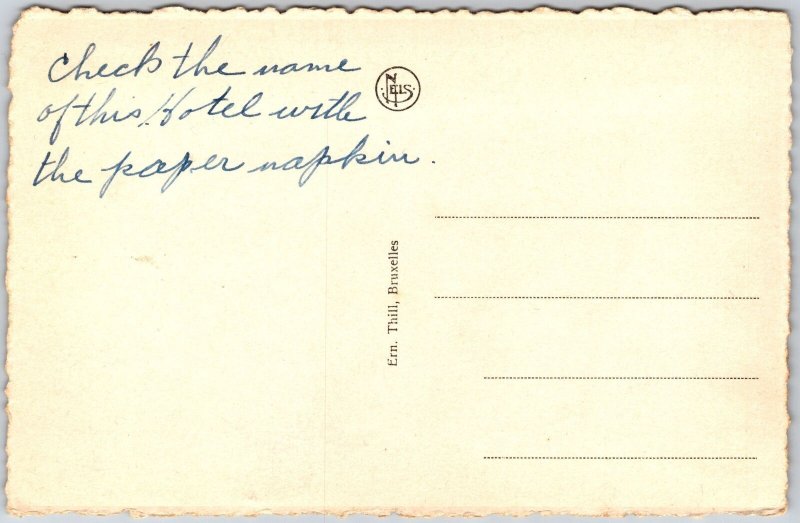 check the name
of this Hotel with
the paper napkin.
NELS
Ern. Thill, Bruxelles